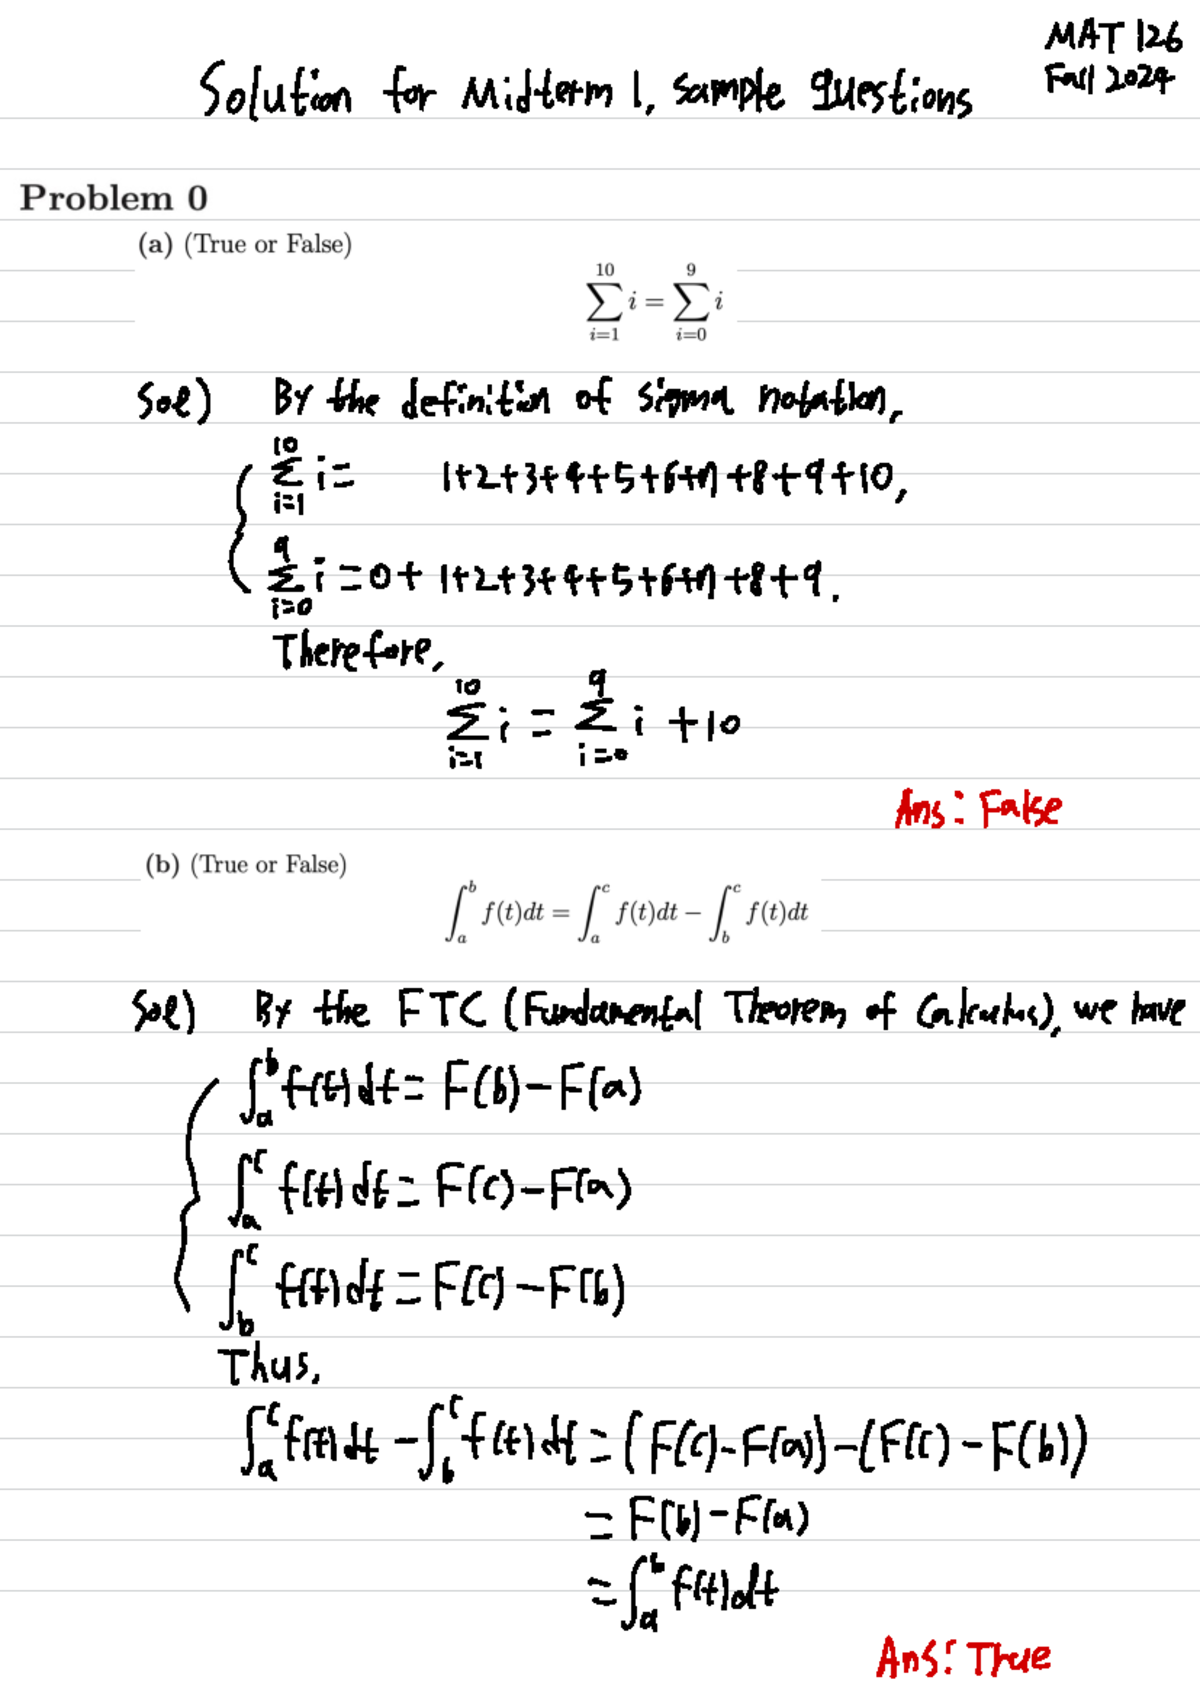 MAT 126
Fall 2024
Solution for Midterm 1, Sample Questions
Problem 0
(a) (True or False)
\sum_{i=1}^{10} i = \sum_{i=0}^{9} i
Sol) By the definition of sigma notation,
\sum_{i=1}^{10} i = 1+2+3+4+5+6+7+8+9+10,
\sum_{i=0}^{9} i = 0+1+2+3+4+5+6+7+8+9.
Therefore,
\sum_{i=1}^{10} i = \sum_{i=0}^{9} i + 10
Ans: False
(b) (True or False)
\int_a^b f(t)dt = \int_a^c f(t)dt - \int_b^c f(t)dt
Sol) By the FTC (Fundamental Theorem of Calculus), we have
\int_a^b f(t)dt = F(b)-F(a)
\int_a^c f(t)dt = F(c)-F(a)
\int_b^c f(t)dt = F(c)-F(b)
Thus,
\int_a^c f(t)dt - \int_b^c f(t)dt = (F(c)-F(a))-(F(c)-F(b))
= F(b)-F(a)
= \int_a^b f(t)dt
Ans: True